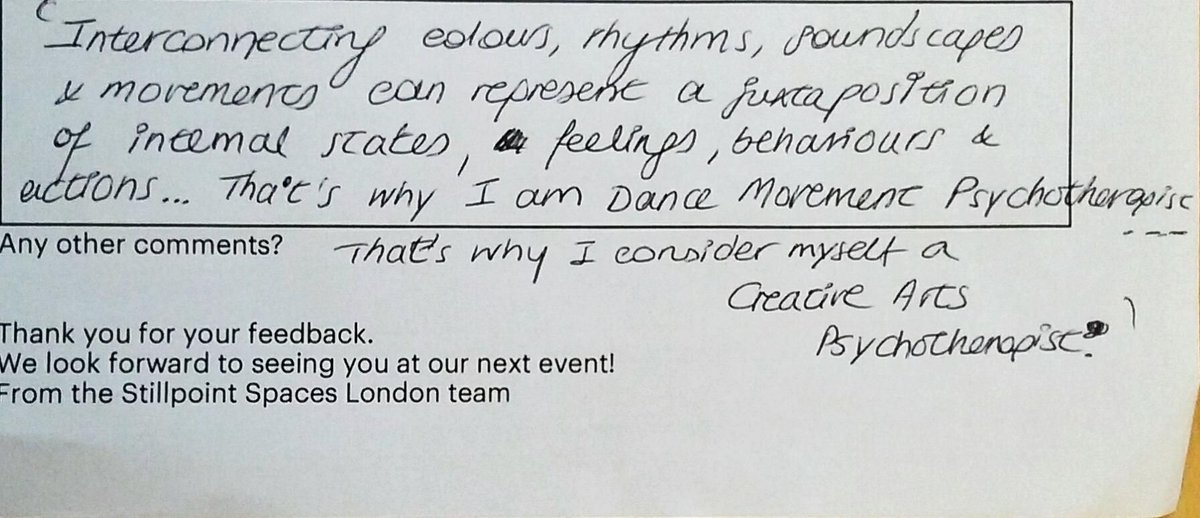 'Interconnecting colours, rhythms, soundscapes
& movements can represent a juxtaposition
of internal states, feelings, behaviours &
actions... That's why I am Dance Movement Psychotherapist
Any other comments? That's why I consider myself a
Creative Arts
Psychotherapist.'
Thank you for your feedback.
We look forward to seeing you at our next event!
From the Stillpoint Spaces London team